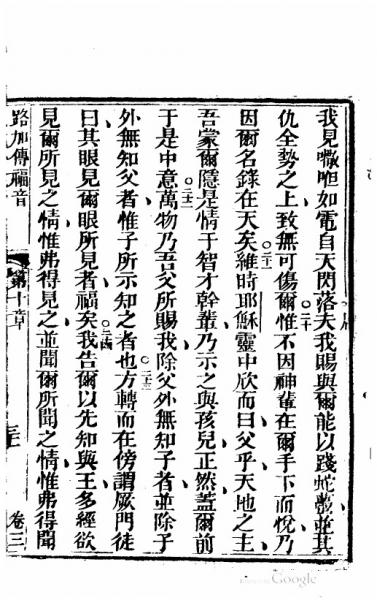 我見㘔呾如電自天閃落夫我賜與爾能以踐蛇蝎並其
仇全勢之上致無可傷爾惟不因神輩在爾手下而悅乃
因爾名錄在天矣維時耶穌靈中欣而曰父乎天地之主
吾蒙爾隱是情于智才幹輩乃示之與孩兒正然蓋爾前
于是中意萬物乃吾父所賜我除父外無知子者並除子
外無知父者惟子所示知之者也方轉而在傍謂厥門徒
曰其眼見爾眼所見者福矣我告爾以先知與王多經欲
見爾所見之情惟弗得見之並聞爾所聞之情惟弗得聞
路加傳福音
第十章
卷三
○二十
○二一
○二二
○二三
○二四
Google